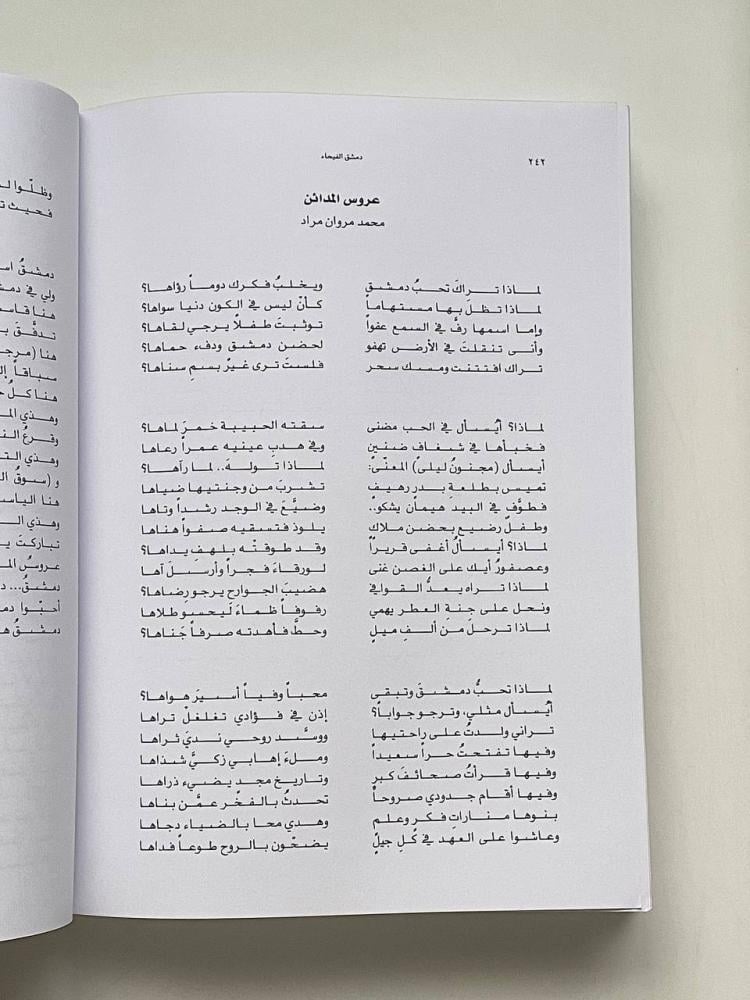 دمشق الفيحاء
٢٤٢
عروس المدائن
محمد مروان مراد
لماذا تراكَ تحبُ دمشق ويخلبُ فكرك دوماً رؤاها؟
لماذا تظلّ بها مستهاماً كأنّ ليس في الكون دنيا سواها؟
وإما اسمها رفَّ في السمع عفواً توثبتَ طفلاً يرجي لقاها؟
وأنى تنقلتَ في الأرض تهفو لحضن دمشق ودفء حماها؟
تراك افتتنت ومسك سحر فلستَ ترى غيرَ بسمِ سناها؟
لماذا؟ أيُسأل في الحب مضنى سقته الحبيبة خمرَ لماها؟
فخبأها في شغاف ضنينٍ وفي هدبِ عينيه عمراً رعاها
أيسأل (مجنونُ ليلى) المعنّى: لماذا تولهَ.. لما رآها؟
تميس بطلعةِ بدرٍ رهيفٍ تشربَ من وجنتيها ضياها
فطوَّف في البيد هيمان يشكو.. وضيَّعَ في الوجد رشداً وتاها
وطفل رضيع بحضن ملاك يلوذ فتسقيه صفواً هناها
لماذا؟ أيسألُ أغفى قريراً وقد طوقتْه بلهف يداها؟
وعصفورُ أيك على الغصن غنى لورقاءَ فجراً وأرسَلَ آها
لماذا تراه يعدُّ القوافي هضيبَ الجوارح يرجو رضاها؟
ونحل على جنةِ العطر يهمي رفوفاً ظماءً لَيحسو طلاها
لماذا ترحلَ من ألفِ ميلٍ وحطَّ فأهدته صرفاً جَناها؟
لماذا تحبُّ دمشقَ وتبقى محباً وفياً أسيرَ هواها؟
أيُسأل مثلي، وترجو جواباً؟ إذن في فؤادي تغلغلْ تراها
تراني ولدتُ على راحتيها ووسَّد روحي نديَ ثراها
وفيها تفتحتُ حراً سعيداً وملءَ إهابي زكيَّ شذاها
وفيها قرأتُ صحائفَ كبرٍ وتاريخ مجدٍ يضيء ذراها
وفيها أقام جدودي صروحاً تحدثُ بالفخر عمَّن بناها
بنوها مناراتِ فكر وعلم وهدي محا بالضياء دجاها
وعاشوا على العهد في كُل جيلٍ يضحّون بالروح طوعاً فداها